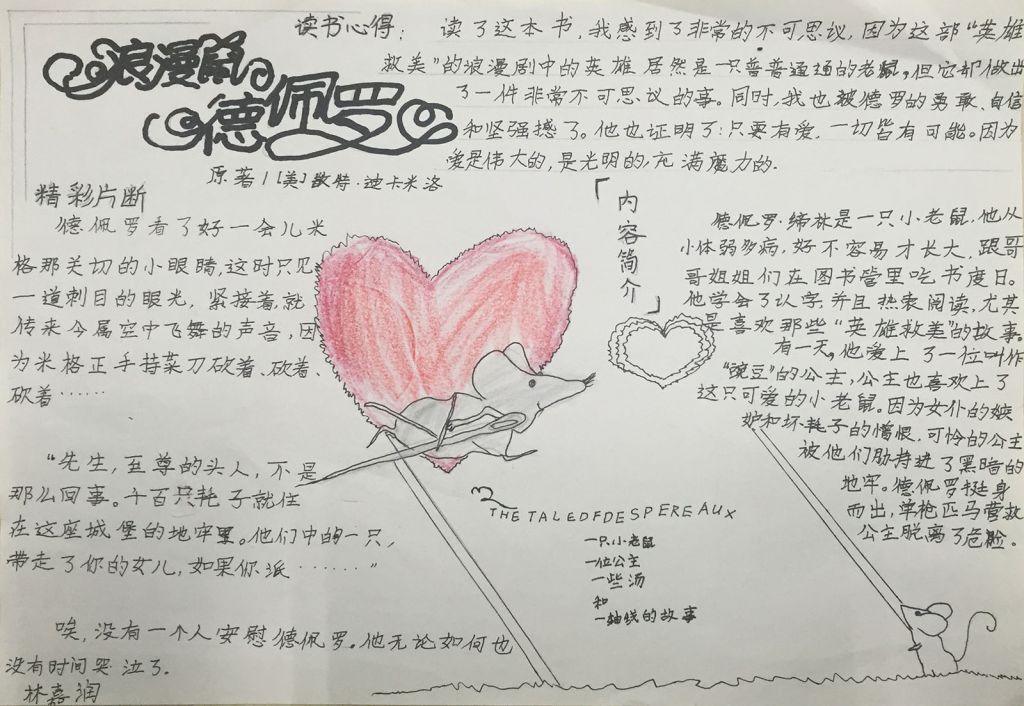 浪漫鼠
德佩罗
原著/[美]凯特·迪卡米洛
读书心得：读了这本书，我感到了非常的不可思议，因为这部“英雄
救美”的浪漫剧中的英雄居然是一只普普通通的老鼠，但它却做出
了一件非常不可思议的事。同时，我也被德罗的勇敢、自信
和坚强撼了。他也证明了：只要有爱，一切皆有可能。因为
爱是伟大的，是光明的，充满魔力的.
精彩片断
德佩罗看了好一会儿米
格那关切的小眼睛，这时只见
一道刺目的眼光，紧接着，就
传来今属空中飞舞的声音，因
为米格正手持菜刀砍着、砍着、
砍着……
“先生，至尊的头人，不是
那么回事。千百只耗子就住
在这座城堡的地牢里。他们中的一只，
带走了你的女儿，如果你派………”
唉，没有一个人安慰德佩罗。他无论如何也
没有时间哭泣了.
林嘉润
「内容简介」
德佩罗·缔林是一只小老鼠，他从
小体弱多病，好不容易才长大，跟哥
哥姐姐们在图书管里吃书度日。
他学会了认字，并且热衷阅读，尤其
是喜欢那些“英雄救美”的故事。
有一天，他爱上了一位叫作
“豌豆”的公主，公主也喜欢上了
这只可爱的小老鼠。因为女仆的嫉
妒和坏耗子的憎恨，可怜的公主
被他们胁持进了黑暗的
地牢。德佩罗挺身
而出，单枪匹马营救
公主脱离了危险.
THE TALE OF DESPEREAUX
一只小老鼠
一位公主
一些汤
和
一轴线的故事